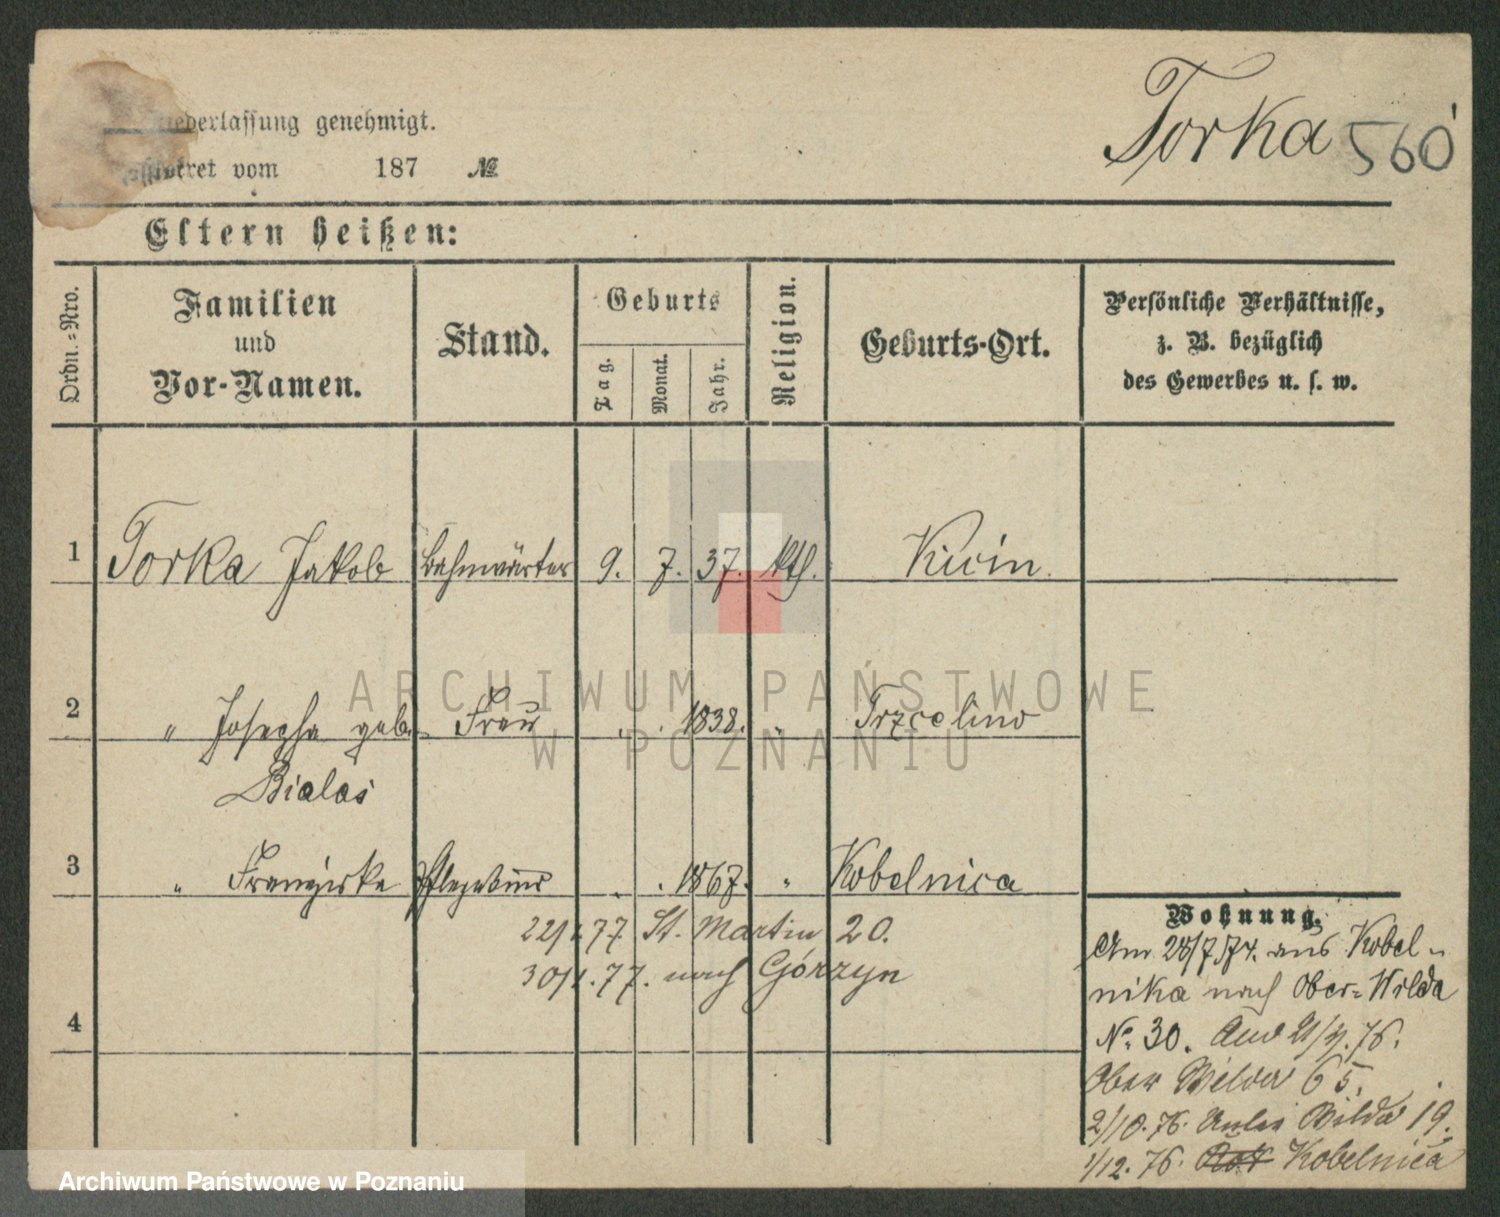 Torka 560
Niederlassung genehmigt.
vom 187 №
Eltern heißen:
Ordn.-Nro.
Familien und Vor-Namen.
Stand.
Geburts
Tag. Monat. Jahr.
Religion.
Geburts-Ort.
Persönliche Verhältnisse,
z. B. bezüglich
des Gewerbes u. s. w.
1 Torka Jakob Bahnwärter 9. 7. 37. kth. Kicin.
2 " Josepha geb. Frau 1838. " Trzcelino
Bialas
3 " Franziska 1867. " Kobelnica
22/1.77 St. Martin 20.
30/1.77. nach Górzyn
4
Wohnung.
Am 28/7.74. aus Kobel-
nika nach Ober-Wilda
No. 30. 76.
Ober Wilda 65.
2/10.76. Unter Wilda 19.
1/12.76. Kobelnica
ARCHIWUM PAŃSTWOWE
W POZNANIU
Archiwum Państwowe w Poznaniu